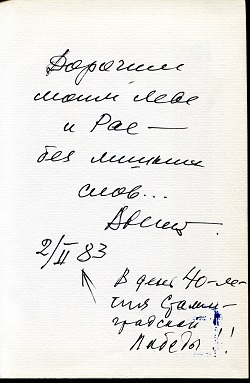 Дорогим
моим Леве
и Рае —
без лишних
слов...
2/II 83
В день 40-ле-
тия Сталин-
градской
Победы!!!